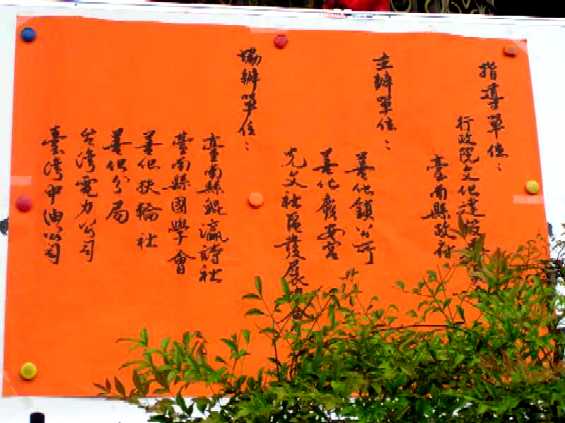 指導單位：
行政院文化建設
臺南縣政府
主辦單位：
善化鎮公所
善化慶安宮
光文社區發展
協辦單位：
臺南縣鯤瀛詩社
臺南縣國學會
善化扶輪社
善化分局
台灣電力公司
臺灣中油公司